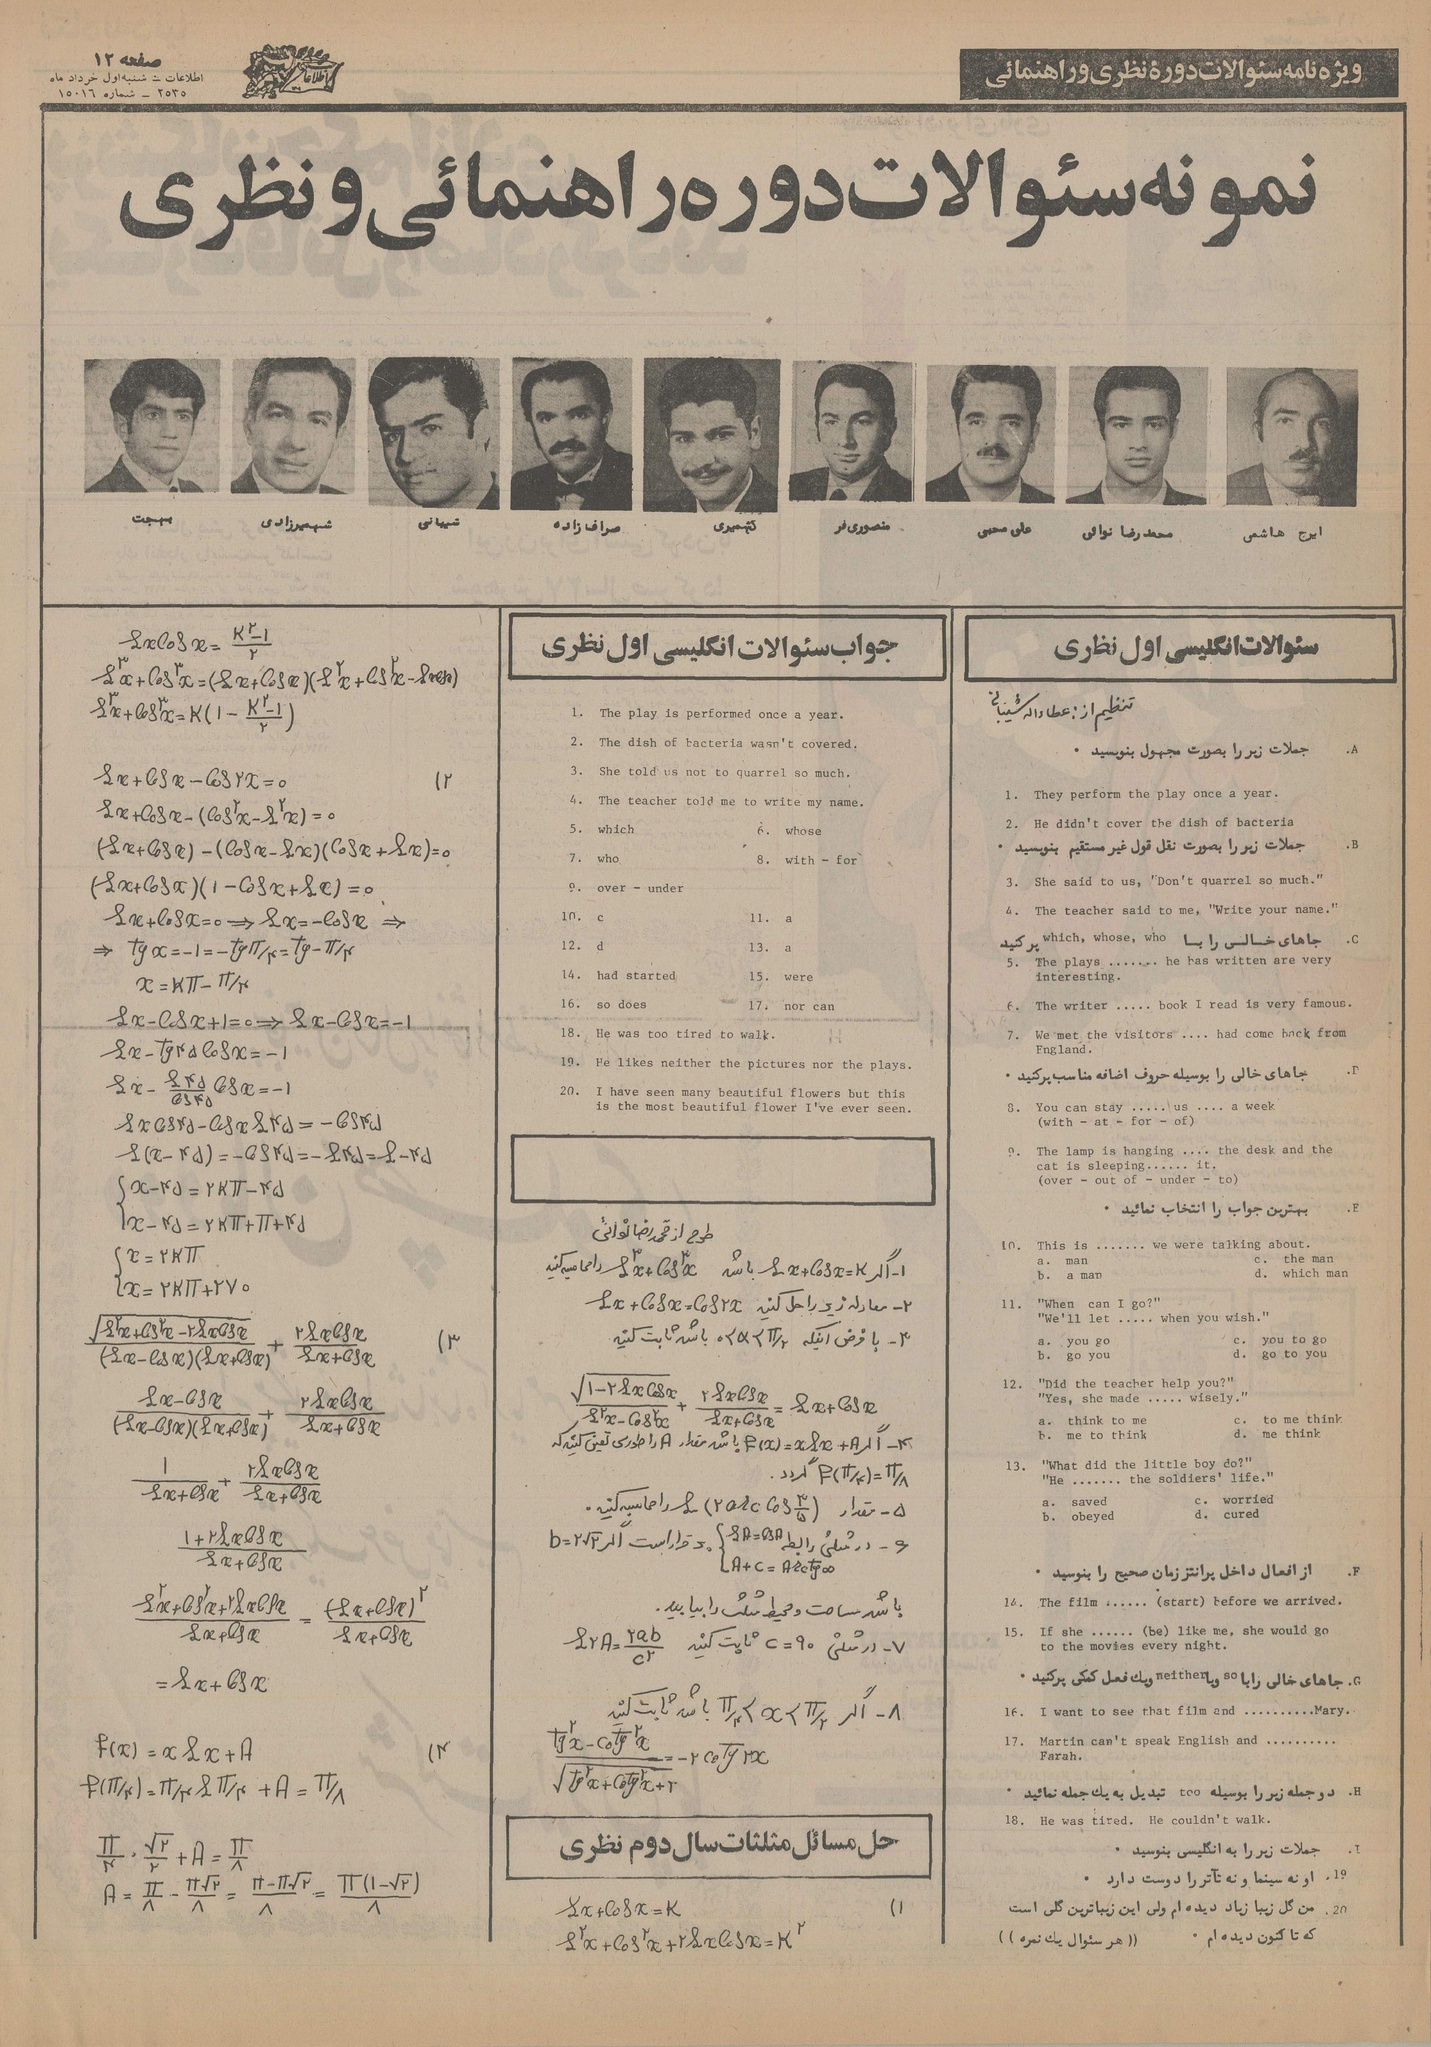 صفحه ۱۲
اطلاعات – شنبه اول خرداد ماه
۲۵۳۵ – شماره ۱۵۰۱۶
اطلاعات
ویژه نامه سئوالات دورهٔ نظری و راهنمائی
نمونه سئوالات دوره راهنمائی و نظری
ایرج هاشمی
محمدرضا نوائی
علی محبی
منصوری فر
صراف زاده
شیبانی
شهمیرزادی
بهجت
سئوالات انگلیسی اول نظری
تنظیم از: عطاءاله شیبانی
A. جملات زیر را بصورت مجهول بنویسید .
1. They perform the play once a year.
2. He didn't cover the dish of bacteria
B. جملات زیر را بصورت نقل قول غیر مستقیم بنویسید .
3. She said to us, "Don't quarrel so much."
4. The teacher said to me, "Write your name."
C. جاهای خالی را با which, whose, who پر کنید
5. The plays ....... he has written are very
interesting.
6. The writer ..... book I read is very famous.
7. We met the visitors .... had come back from
England.
D. جاهای خالی را بوسیله حروف اضافه مناسب پر کنید .
8. You can stay ..... us .... a week
(with - at - for - of)
9. The lamp is hanging .... the desk and the
cat is sleeping...... it.
(over - out of - under - to)
E. بهترین جواب را انتخاب نمائید .
10. This is ....... we were talking about.
a. man c. the man
b. a man d. which man
11. "When can I go?"
"We'll let ..... when you wish."
a. you go c. you to go
b. go you d. go to you
12. "Did the teacher help you?"
"Yes, she made ..... wisely."
a. think to me c. to me think
b. me to think d. me think
13. "What did the little boy do?"
"He ....... the soldiers' life."
a. saved c. worried
b. obeyed d. cured
F. از افعال داخل پرانتز زمان صحیح را بنوسید .
14. The film ...... (start) before we arrived.
15. If she ...... (be) like me, she would go
to the movies every night.
G. جاهای خالی را با so ویا neither ویك فعل کمکی پر کنید .
16. I want to see that film and ..........Mary.
17. Martin can't speak English and ..........
Farah.
H. دو جمله زیر را بوسیله too تبدیل به یك جمله نمائید .
18. He was tired. He couldn't walk.
I. جملات زیر را به انگلیسی بنوسید .
19. او نه سینما و نه تآتر را دوست دارد .
20. من گل زیبا زیاد دیده ام ولی این زیباترین گلی است
که تا کنون دیده ام . (( هر سئوال یك نمره ))
جواب سئوالات انگلیسی اول نظری
1. The play is performed once a year.
2. The dish of bacteria wasn't covered.
3. She told us not to quarrel so much.
4. The teacher told me to write my name.
5. which 6. whose
7. who 8. with - for
9. over - under
10. c 11. a
12. d 13. a
14. had started 15. were
16. so does 17. nor can
18. He was too tired to walk.
19. He likes neither the pictures nor the plays.
20. I have seen many beautiful flowers but this
is the most beautiful flower I've ever seen.
طرح از محمدرضا نوائی
۱- اگر Sin x+Cos x=K باشد Sin³x+Cos³x را محاسبه کنید
۲- معادله زیر را حل کنید Sin x+Cos x=Cos۲x
باشد ثابت کنید
√(1-۲Sin x Cos x)/(Sin²x-Cos²x) + ۲Sin x Cos x/(Sin x+Cos x) = Sin x+Cos x
۴- اگر f(x)=x Sin x+A باشد مقدار A را طوری تعیین کنید که
f(π/۴)=π/۸ گردد.
۵- مقدار Sin(۲arc Cos ۳/۵) را محاسبه کنید.
۶- در مثلثی رابطه { Sin A=Cos A برقرار است اگر b=۲√۲
A+C=Arctg∞
باشد مساحت و محیط مثلث را بیابید.
۷- در مثلثی C=۹۰ ثابت کنید Sin۲A=۲ab/c²
۸- اگر π/۴<x<π/۲ باشد ثابت کنید
(tg²x-Cotg²x)/√(tg²x+Cotg²x+۲) = -۲Cotg۲x
حل مسائل مثلثات سال دوم نظری
۱) Sin x+Cos x=K
Sin²x+Cos²x+۲Sin x Cos x=K²
Sin x Cos x=(K²-1)/۲
Sin³x+Cos³x=(Sin x+Cos x)(Sin²x+Cos²x-Sin x Cos x)
Sin³x+Cos³x=K(1-(K²-1)/۲)
۲) Sin x+Cos x-Cos۲x=0
Sin x+Cos x-(Cos²x-Sin²x)=0
(Sin x+Cos x)-(Cos x-Sin x)(Cos x+Sin x)=0
(Sin x+Cos x)(1-Cos x+Sin x)=0
Sin x+Cos x=0 ⇒ Sin x=-Cos x ⇒
⇒ tg x=-1=-tg π/۴=tg-π/۴
x=Kπ-π/۴
Sin x-Cos x+1=0 ⇒ Sin x-Cos x=-1
Sin x-tg۴۵Cos x=-1
Sin x-(Sin۴۵/Cos۴۵)Cos x=-1
Sin x Cos۴۵-Cos x Sin۴۵=-Cos۴۵
Sin(x-۴۵)=-Cos۴۵=-Sin۴۵=Sin-۴۵
{ x-۴۵=۲Kπ-۴۵
x-۴۵=۲Kπ+π+۴۵
{ x=۲Kπ
x=۲Kπ+۲۷۰
۳) √(Sin²x+Cos²x-۲Sin x Cos x)/((Sin x-Cos x)(Sin x+Cos x)) + ۲Sin x Cos x/(Sin x+Cos x)
(Sin x-Cos x)/((Sin x-Cos x)(Sin x+Cos x)) + ۲Sin x Cos x/(Sin x+Cos x)
1/(Sin x+Cos x) + ۲Sin x Cos x/(Sin x+Cos x)
(1+۲Sin x Cos x)/(Sin x+Cos x)
(Sin²x+Cos²x+۲Sin x Cos x)/(Sin x+Cos x) = (Sin x+Cos x)²/(Sin x+Cos x)
=Sin x+Cos x
۴) f(x)=x Sin x+A
f(π/۴)=π/۴ Sin π/۴+A=π/۸
π/۴ · √۲/۲+A=π/۸
A=π/۸-π√۲/۸=(π-π√۲)/۸=π(1-√۲)/۸